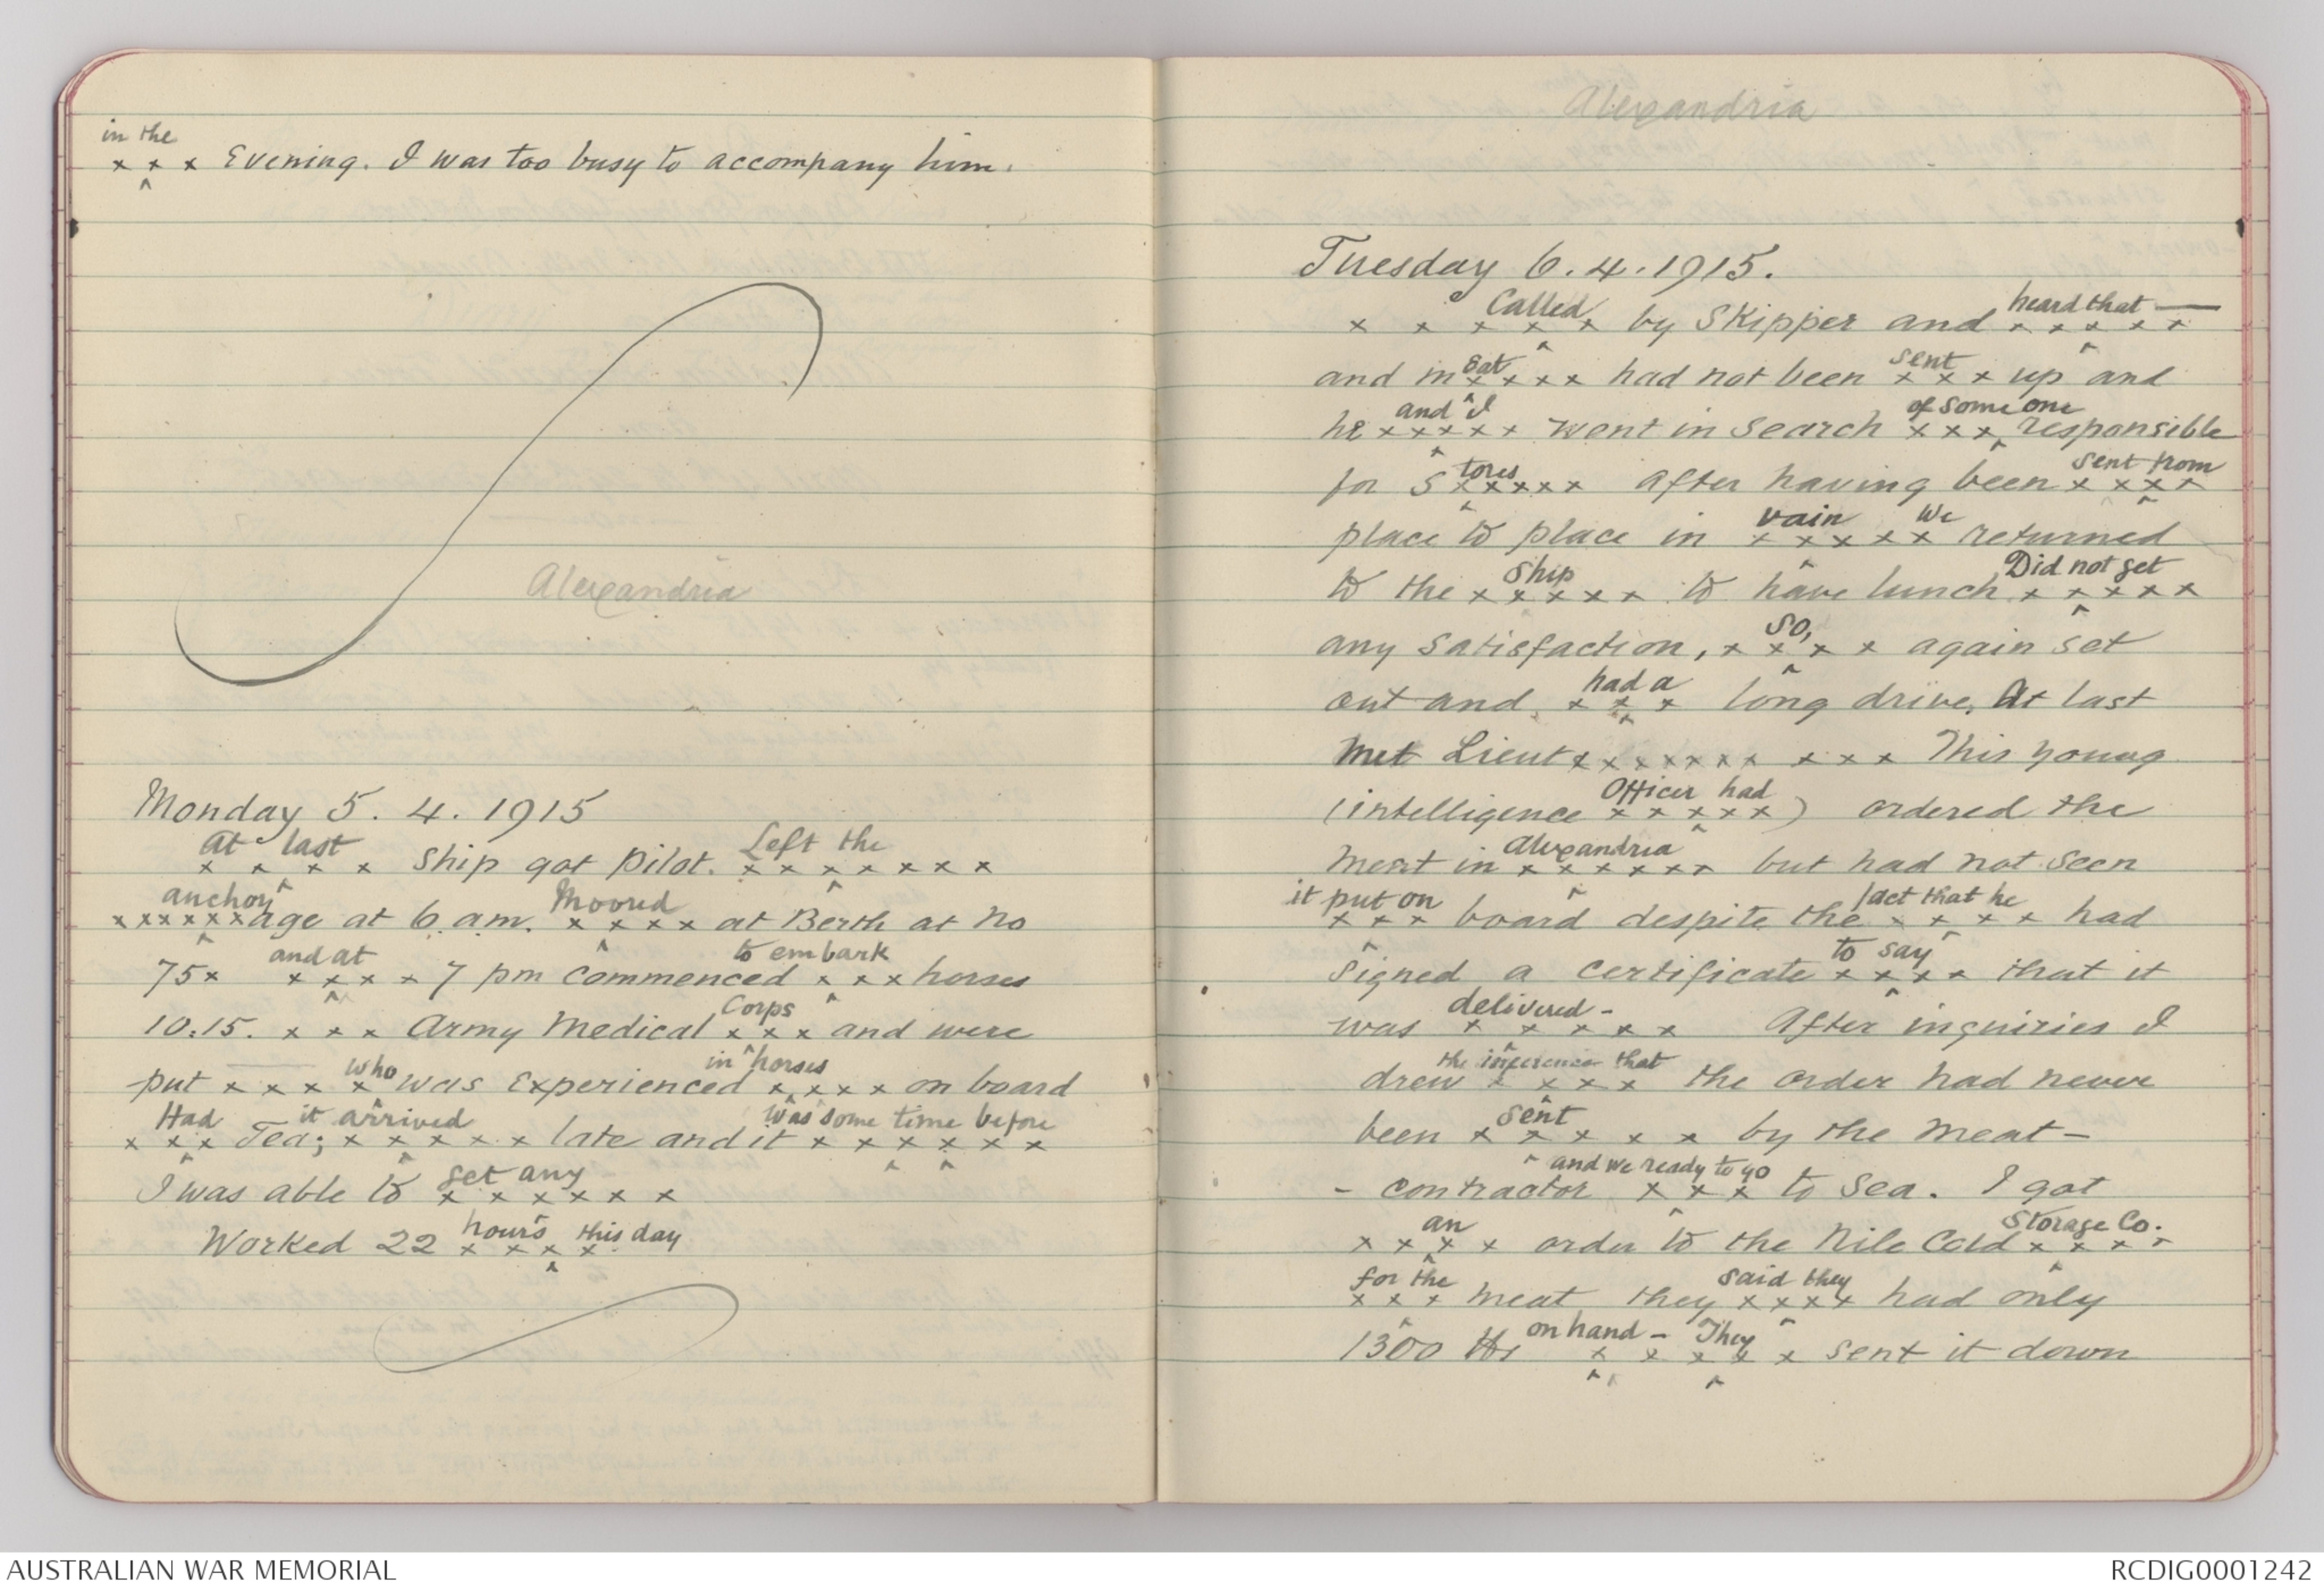 in the
x x x Evening. I was too busy to accompany him.
Alexandria
Monday 5. 4. 1915
At last Left the
x x x x Ship got Pilot. x x x x x x x
anchor Moored
x x x x x x age at 6 am. x x x x at Berth at No
and at to embark
75 x x x x x 7 pm commenced x x x horses
Corps
10.15. x x x Army Medical x x x and were
who in horses
put x x x x was Experienced x x x x on board
Had it arrived was some time before
x x x Tea; x x x x x x late and it x x x x x x
get any
I was able to x x x x x x
hours this day
Worked 22 x x x x
Alexandria
Tuesday 6. 4. 1915.
Called heard that —
x x x x x by Skipper and x x x x x
eat sent
and m x x x x had not been x x x up and
and I of some one
he x x x x x went in search x x x responsible
tores sent from
for S x x x x x After having been x x x x
vain we
place to place in x x x x x returned
Ship Did not get
to the x x x x x to have lunch x x x x x
So,
any satisfaction, x x x x again set
had a
out and x x x long drive. At last
Met Lieut x x x x x x x x x x This young
Officer had
(intelligence x x x x x) ordered the
Alexandria
meat in x x x x x x but had not seen
it put on fact that he
x x x board despite the x x x x had
to say
signed a certificate x x x x that it
delivered -
was x x x x x After inquiries I
the inference that
drew x x x x the order had never
sent
been x x x x x by the meat -
and we ready to go
- contractor x x x to Sea. I got
an Storage Co.
x x x x order to the Nile Cold x x x x
for the said they
x x x meat they x x x x had only
on hand - They
1300 lbs x x x x x sent it down
AUSTRALIAN WAR MEMORIAL
RCDIG0001242